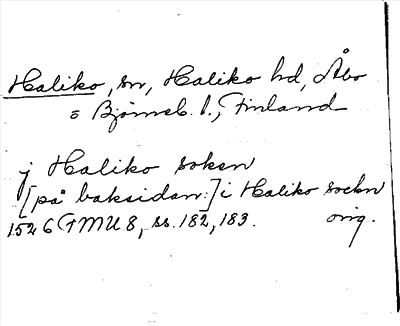 Haliko, sn, Haliko hd, Åbo
o Björneb. l., Finland
j Haliko soken
[på baksidan:] i Haliko socken
1526 FMU 8, ss. 182, 183. orig.